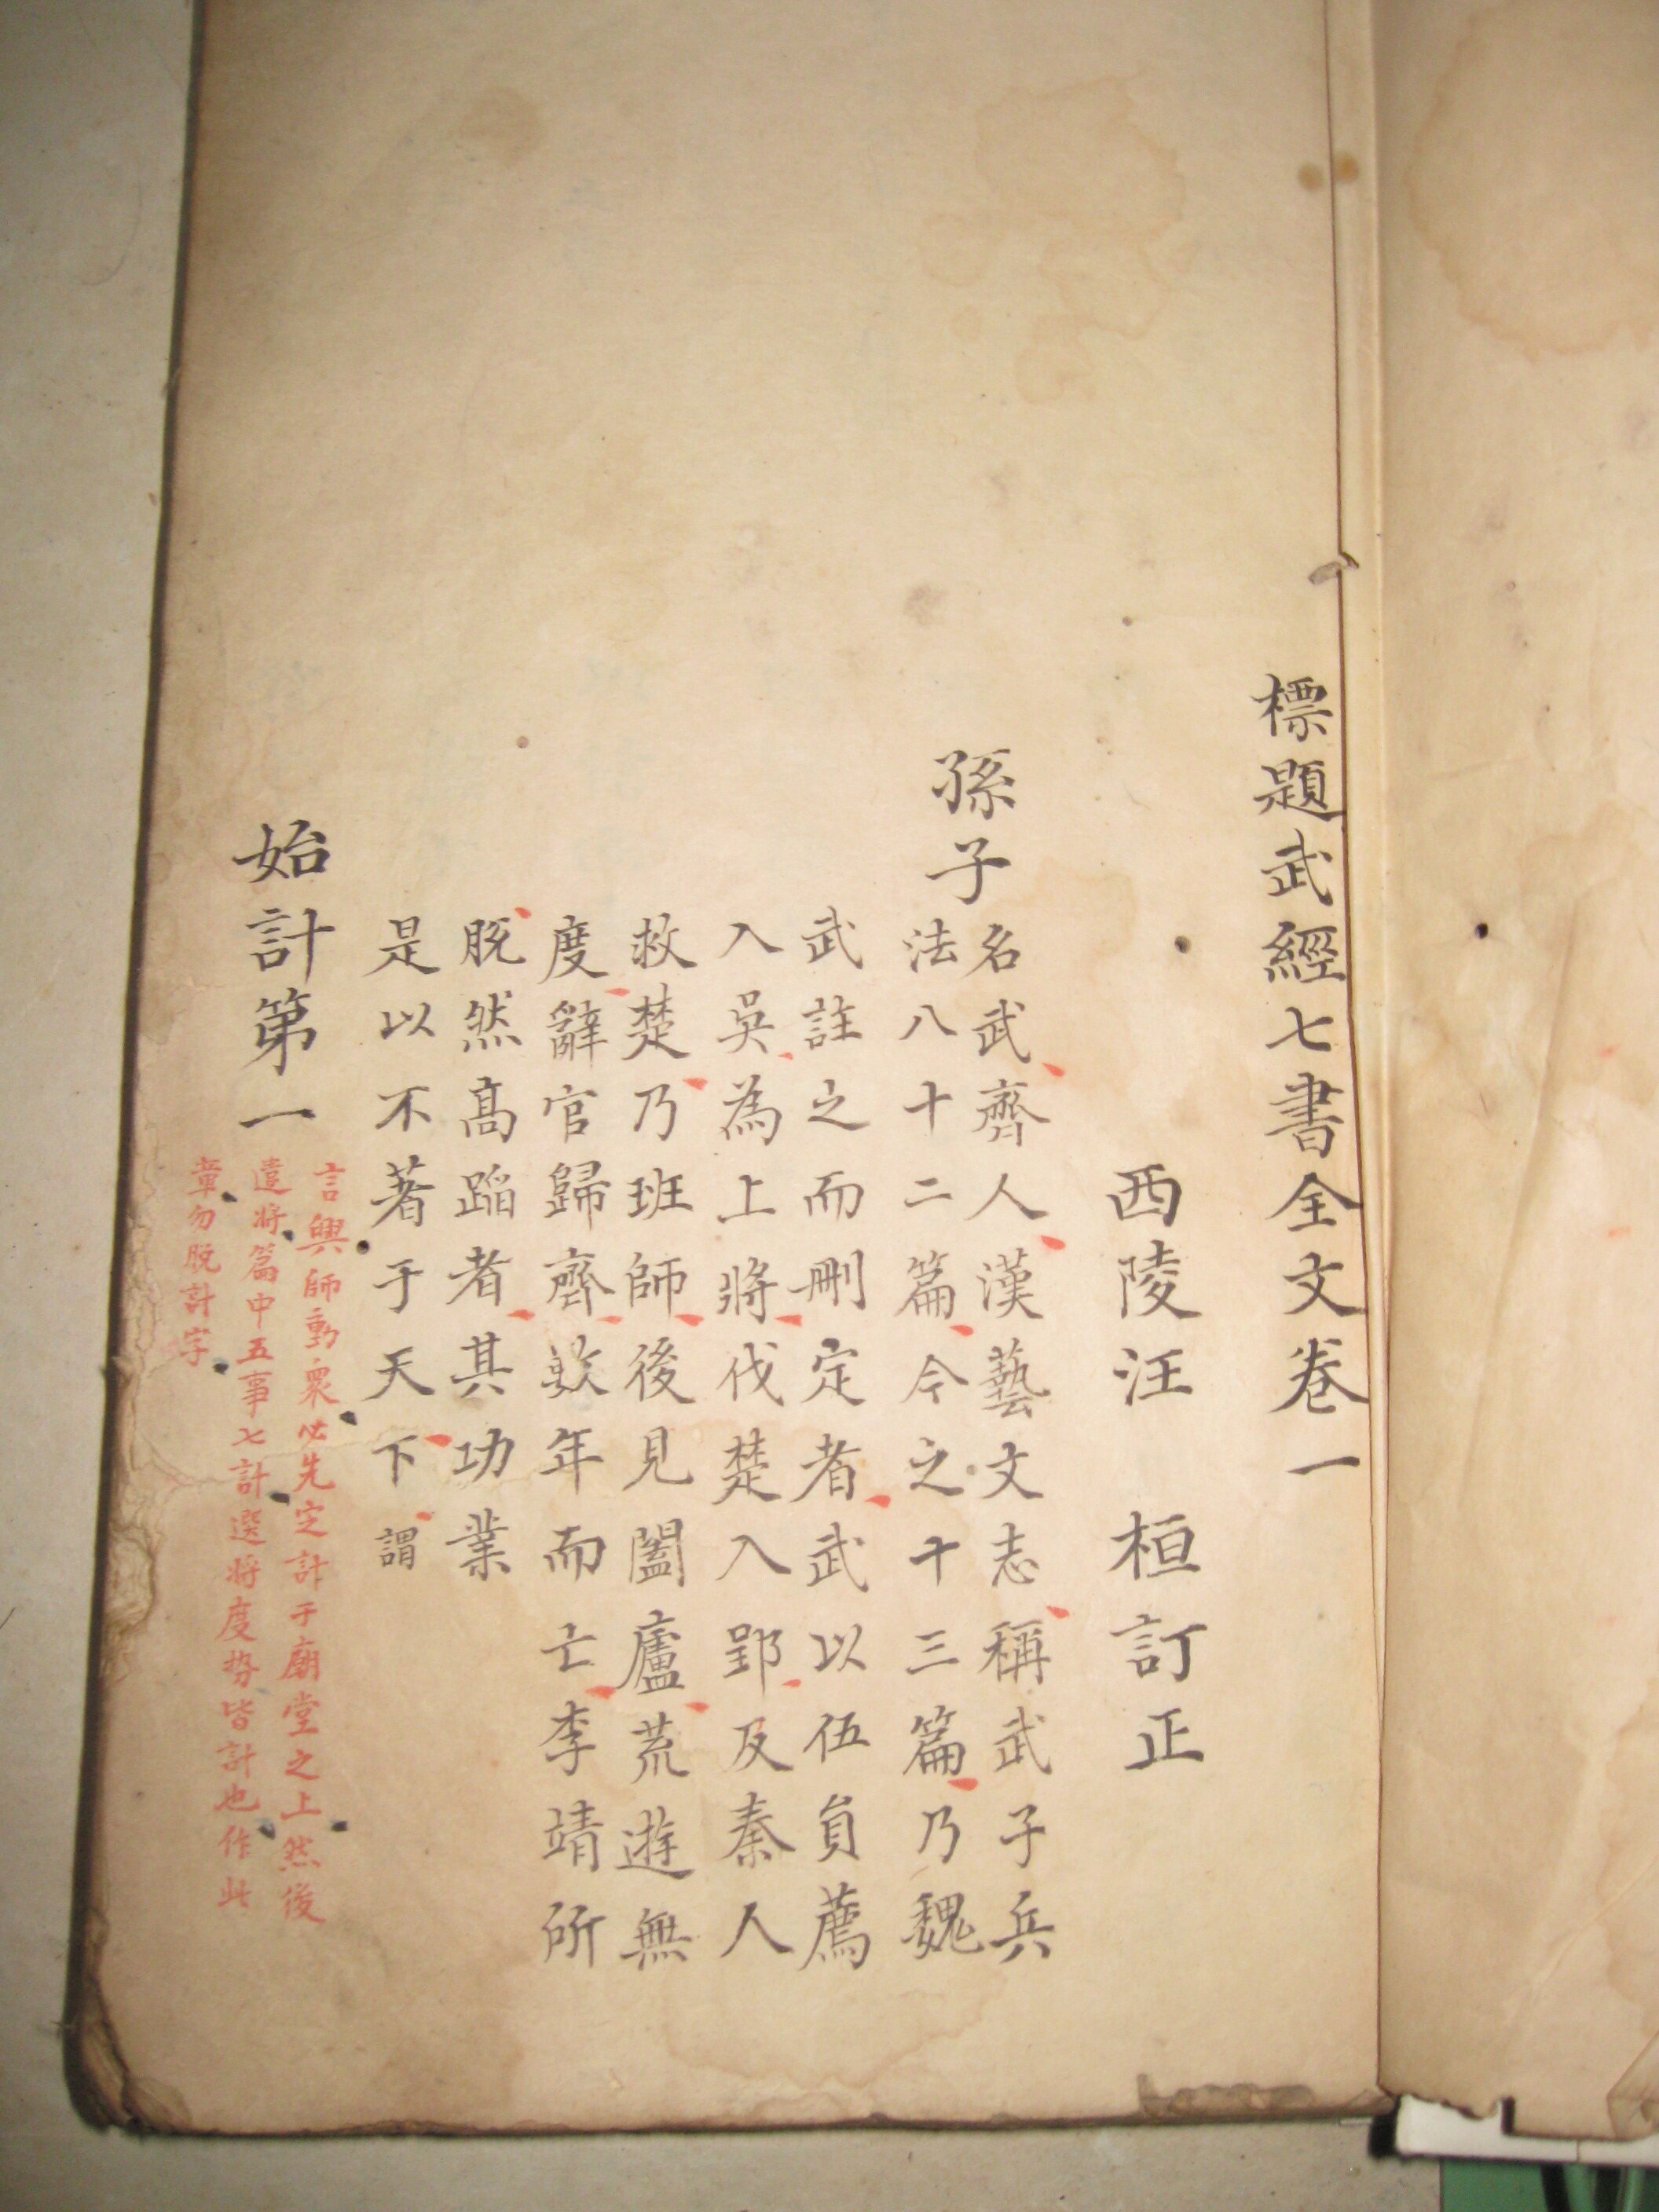 標題武經七書全文卷一
西陵汪 桓訂正
孫子
名武齊人漢藝文志稱武子兵
法八十二篇今之十三篇乃魏
武註之而刪定者武以伍員薦
入吳為上將伐楚入郢及秦人
救楚乃班師後見闔廬荒遊無
度辭官歸齊數年而亡李靖所
脫然高蹈者其功業
是以不著于天下謂
始計第一
言興師動衆必先定計于廟堂之上然後
遣將篇中五事七計選將度势皆計也作此
章勿脫計字